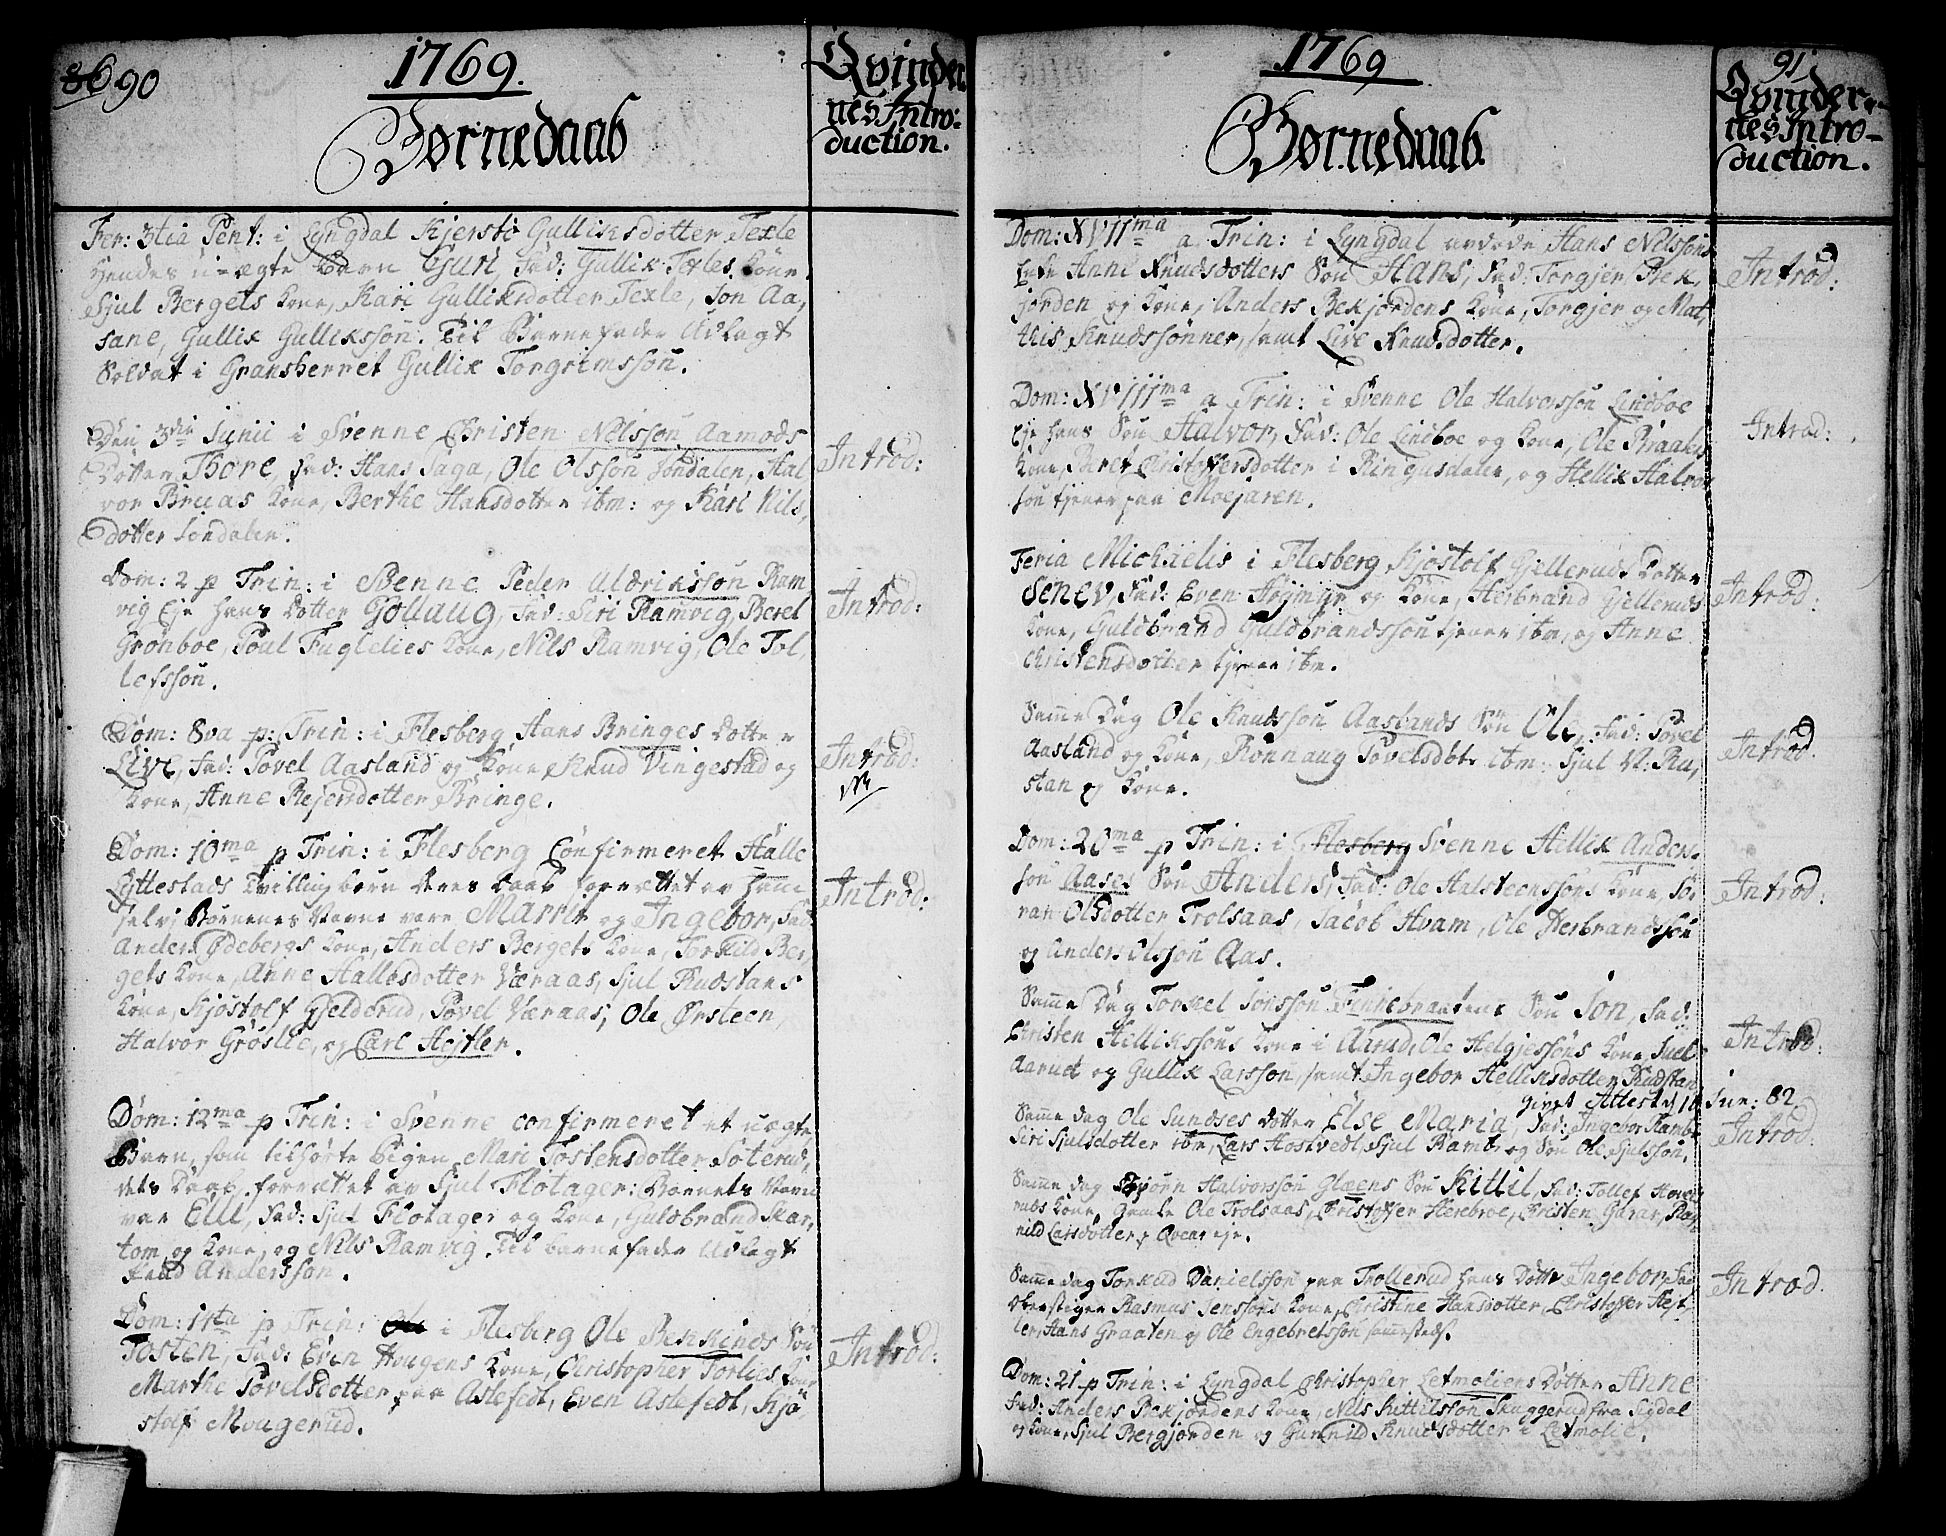 86 90
1769.
Børnedaab
Qvinder
nes Intro:
duction.
Fer: 3tia Pent: i Lyngdal Kjersti Gulliksdotter Texle
Hendes u-ægte Barn Guri, Fad: Gullik Texles Kone
Sjul Bergets Kone, Kari Gulliksdotter Texle, Jon Aa,
sane, Gullik Gulliksson. Til Barnefader Udlagt
Soldat i Gransherret Gullik Torgrimsson.
Den 3die Junii i Svenne Christen Nilsson Aamods
Dotter Thore, Fad: Hans Saga, Ole Olsson Jondalen, Hal
vor Bruas Kone, Berthe Hansdotter ibm: og Kari Nils,
dotter Jondalen.
Introd:
Dom: 2 p Trin: i Svenne Peder Aldriksson Ram
vig Eje hans Dotter Gollaug, Fad: Siri Ramvig, Berel
Grønboe, Poul Fuglelies Kone, Nils Ramvig, Ole Tol,
lefsson.
Introd:
Dom: 8va p: Trin: i Flesberg Hans Bringes Dotter
Live, Fad: Povel Aasland og Kone, Knud Vingestad og
Kone, Anne Rejersdotter Bringe.
Introd:
Dom: 10ma p Trin: i Flesberg Confirmeret Halle
Lyttestads Tvilling børn deres Daab forrettet av ham
selv, Børnenes Navne vare Marrit og Ingebor, Fad
Anders Ødebergs Kone, Anders Bergets Kone, Torkild Ber,
gets Kone, Anne Hallesdotter Væraas, Sjul Rudstans
Kone, Kjøstolf Gjelderud, Povel Væraas, Ole Ørsteen,
Halvor Grøslie, og Carl Hejtler.
Introd:
Dom: 12ma p Trin: i Svenne confirmeret et uægte
Barn, som tilhørte Pigen Mari Tostensdotter Søterud,
dets Daab forrettet av Sjul Flotager: Barnets Navn
var Elli, Fad: Sjul Flotager og Kone, Guldbrand Skar,
tom og Kone, og Nils Ramvig. Til barnefader Udlagt
Knud Andersson.
Dom: 11ta p Trin: i Flesberg Ole Bekkinds Søn
Tosten, Fad: Even Hougens Kone, Christopher Torlies Kone
Marthe Povelsdotter paa Aslefedt, Even Aslefedt, Kjø,
stolf Mougerud.
Introd:
1769
Børnedaab.
91
Qvinder
nes Intro-
duction.
Dom: XVIIma a Trin: i Lyngdal avdøde Hans Nilssøns
Enke Anne Knudsdotters Søn Hans, Fad: Torgjer Bek,
jorden og Kone, Anders Bekjordens Kone, Torgjer og Mat,
this Knudssønner, samt Live Knudsdotter.
Introd:
Dom: XVIIIma a Trin: i Svenne Ole Halvorsson Lindboe
Eje hans Søn Halvor, Fad: Ole Lindboe og Kone, Ole Braatens
Kone, Beret Christoffersdotter i Ringnesdalen, og Hellik Halvor
søn tjener paa Moejaren.
Introd:
Feria Michaelis i Flesberg Kjøstolf Gjelleruds Dotter
Senev, Fad: Even Højmyr og Kone, Herbrand Gjelleruds
Kone, Guldbrand Guldbrandsson tjener ibm, og Anne
Christensdotter tjener ibm.
Introd:
Samme Dag Ole Knudsson Aaslands Søn Ole, Fad: Povel
Aasland og Kone, Ronnaug Povelsdotr ibm: Sjul N: Ru,
stan og Kone.
Introd.
Dom: 20ma p Trin: i Flesberg Svenne Hellik Anders-
søn Aases Søn Anders, Fad: Ole Halsteenssøns Kone, Jø,
ran Olsdotter Trolsaas, Jacob Hvam, Ole Herbrandsson
og Anders Olsson Aas.
Introd.
Samme Dag Torkel Jonsson Finnebraatens Søn Jon, Fad:
Christen Hellikssøns Kone i Aarud, Ole Helgjessøns Kone, Juel
Aarud og Gullik Larsson, samt Ingebor Helliksdotter Rudstan
Introd:
givet Attest d 18 Jun: 82
Samme dag Ole Sundses Dotter Else Maria, Fad: Ingebor Ramb
Siri Sjulsdotter ibm, Lars Hostvedt, Sjul Ramb, og Søn Ole Sjulsson.
Introd.
Samme dag Bjørn Halvorsson Glaens Søn Kittil, Fad: Tollef Hove,
ruds Kone, Gamle Ole Trolsaas, Christoffer Herebroe, Christen Garar, Rag,
nild Larsdotter, Qværneje.
Samme dag Torkild Danielsson paa Trollerud hans Dotter Ingebor Fad
Oberstiger Rasmus Jenssøns Kone, Christine Hansdotter, Christoffer Hejt,
ler, Hans Graaten og Ole Engebretsson sammesteds.
Introd.
Dom: 21 p Trin: i Lyngdal Christopher Letmoliens Dotter Anne
Fad: Anders Bekjordens Kone, Nils Kittilsson Skuggerud fra Sigdal
og Kone, Sjul Bergjorden og Gunnild Knudsdotter i Letmolie.